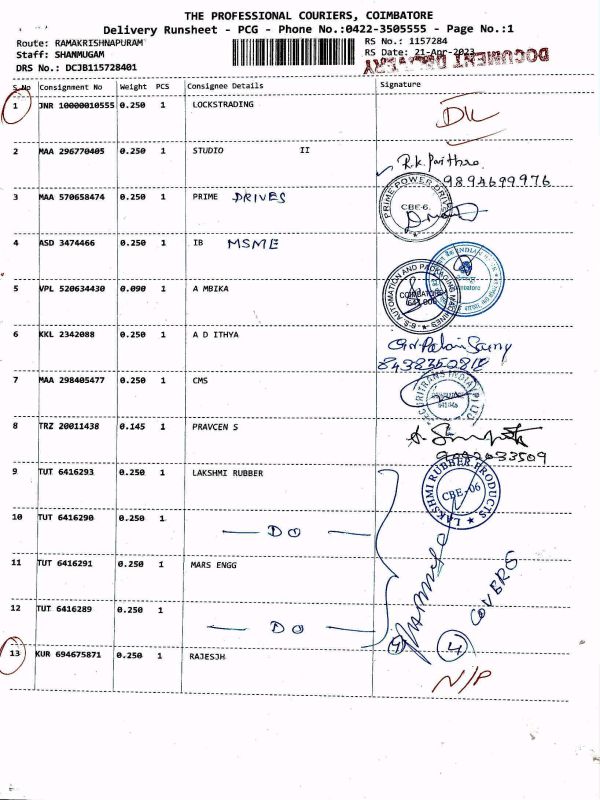 THE PROFESSIONAL COURIERS, COIMBATORE
Delivery Runsheet - PCG - Phone No.:0422-3505555 - Page No.:1
Route: RAMAKRISHNAPURAM RS No.: 1157284
Staff: SHANMUGAM RS Date: 21-Apr-2023
DRS No.: DCJB115728401
DOCUMENT DELIVERY
S.No Consignment No Weight PCS Consignee Details Signature
1 JNR 10000010555 0.250 1 LOCKSTRADING DL
2 MAA 296770405 0.250 1 STUDIO II
9894699976
3 MAA 570658474 0.250 1 PRIME DRIVES
PRIME POWER DRIVES
CBE-6.
4 ASD 3474466 0.250 1 IB MSME
5 VPL 520634430 0.090 1 A MBIKA
G.S. AUTOMATION AND PACKAGING MACHINES
COIMBATORE
641 006
6 KKL 2342088 0.250 1 A D ITHYA
7 MAA 298405477 0.250 1 CMS
8 TRZ 20011438 0.145 1 PRAVCEN S
9 TUT 6416293 0.250 1 LAKSHMI RUBBER
LAKSHMI RUBBER PRODUCTS
CBE-06
10 TUT 6416290 0.250 1 — DO —
11 TUT 6416291 0.250 1 MARS ENGG
12 TUT 6416289 0.250 1 — DO —
4 COVERS
13 KUR 694675871 0.250 1 RAJESJH N/P